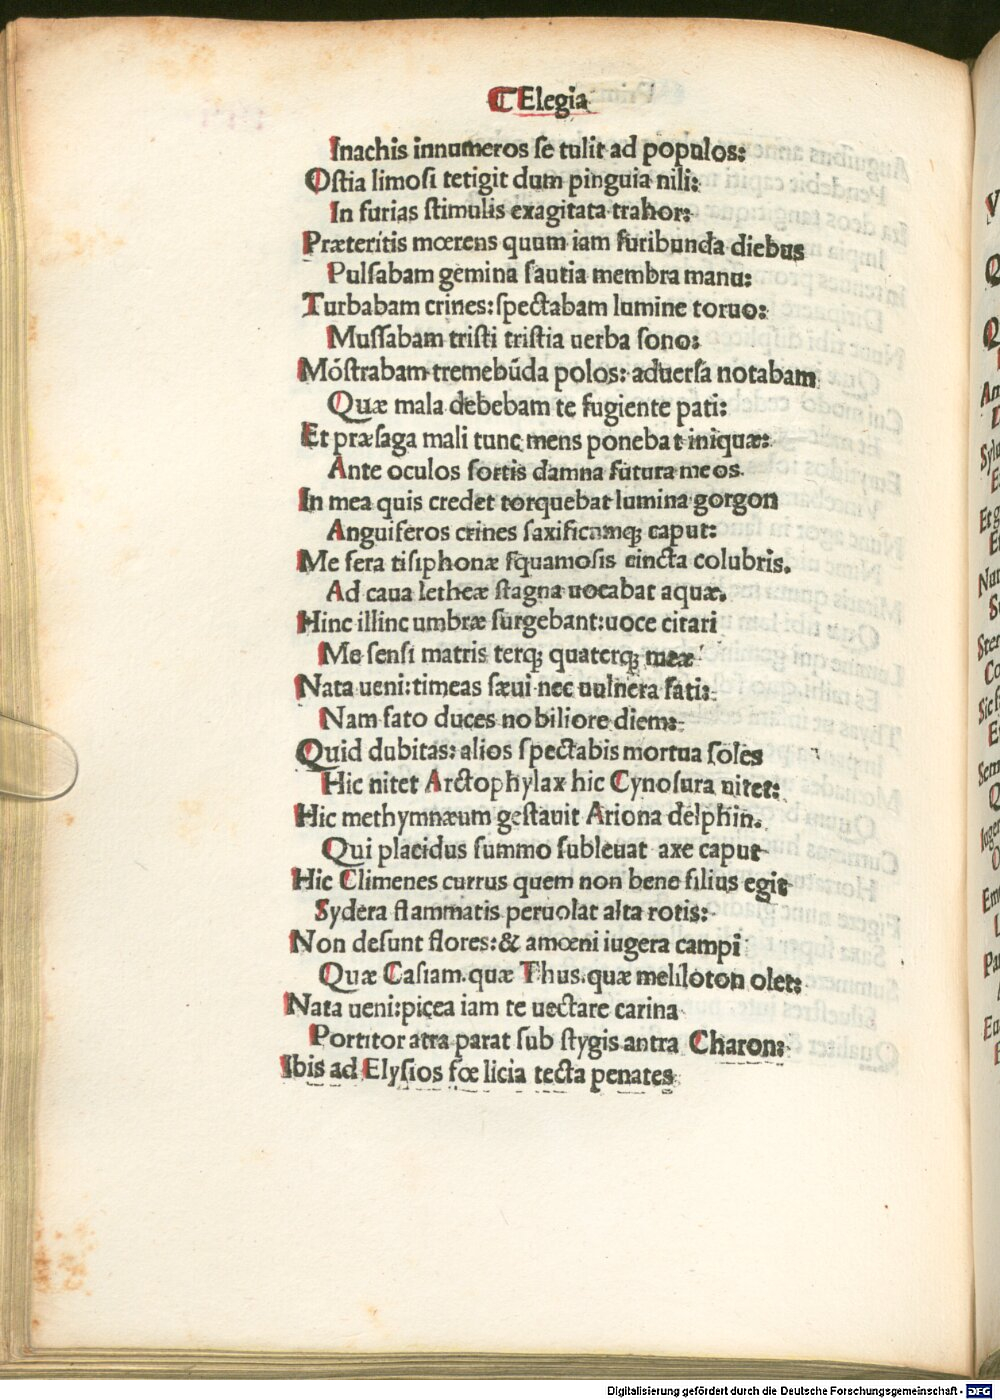 ¶ Elegia
Inachis innumeros se tulit ad populos:
Ostia limosi tetigit dum pinguia nili:
In furias stimulis exagitata trahor:
Præteritis mœrens quum iam furibunda diebus
Pulsabam gemina sautia membra manu:
Turbabam crines: spectabam lumine toruo:
Mussabam tristi tristia uerba sono:
Mōstrabam tremebūda polos: aduersa notabam
Quæ mala debebam te fugiente pati:
Et præsaga mali tunc mens ponebat iniquæ:
Ante oculos sortis damna futura meos.
In mea quis credet torquebat lumina gorgon
Anguiferos crines saxificumq; caput:
Me fera tisiphonæ squamosis cincta colubris.
Ad caua letheæ stagna uocabat aquæ.
Hinc illinc umbræ surgebant: uoce citari
Me sensi matris terq; quaterq; meæ
Nata ueni: timeas sæui nec uulnera fati:
Nam fato duces nobiliore diem:
Quid dubitas: alios spectabis mortua soles
Hic nitet Arctophylax hic Cynosura nitet:
Hic methymnæum gestauit Ariona delphin.
Qui placidus summo subleuat axe caput
Hic Climenes currus quem non bene filius egit
Sydera flammatis peruolat alta rotis:
Non desunt flores: & amœni iugera campi
Quæ Casiam. quæ Thus. quæ meliloton olet:
Nata ueni: picea iam te uectare carina
Portitor atra parat sub stygis antra Charon:
Ibis ad Elysios fœlicia tecta penates
Digitalisierung gefördert durch die Deutsche Forschungsgemeinschaft - DFG